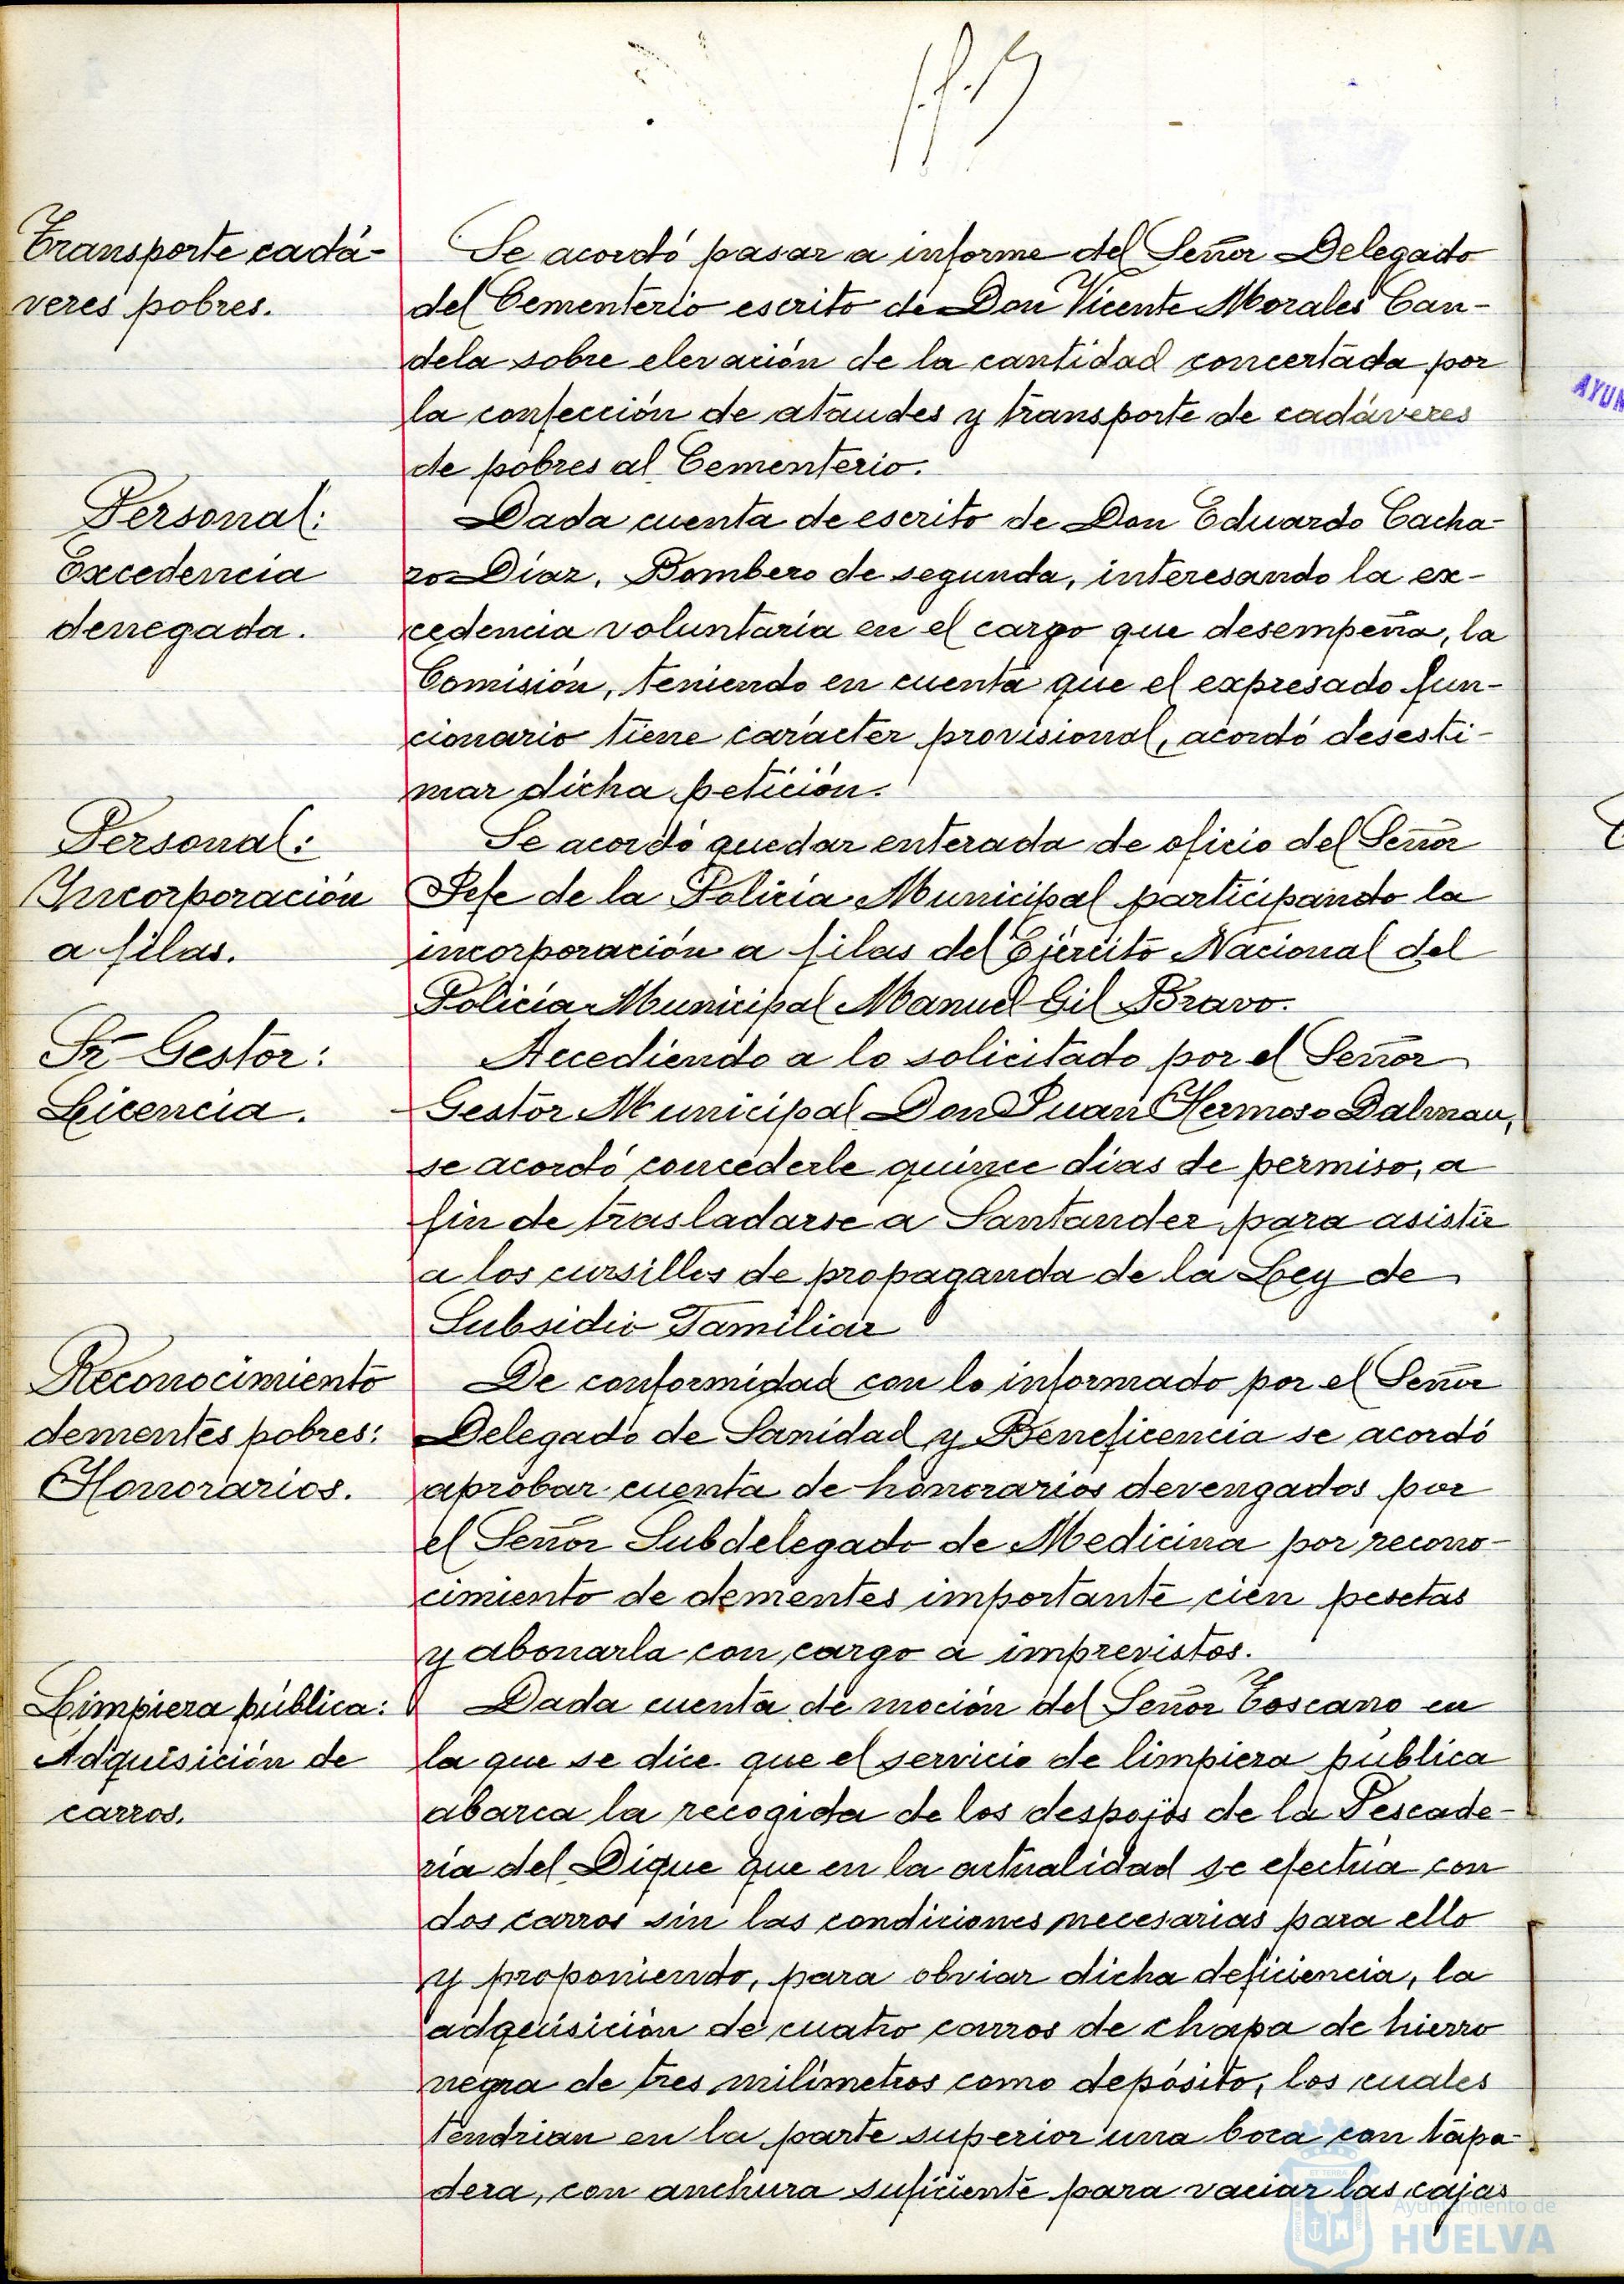 Transporte cadá-
veres pobres.
Se acordó pasar a informe del Señor Delegado
del Cementerio escrito de Don Vicente Morales Can-
dela sobre elevación de la cantidad concertada por
la confección de ataudes y transporte de cadáveres
de pobres al Cementerio.
Personal:
Excedencia
denegada.
Dada cuenta de escrito de Don Eduardo Cacha-
ro Díaz, Bombero de segunda, interesando la ex-
cedencia voluntaria en el cargo que desempeña, la
Comisión, teniendo en cuenta que el expresado fun-
cionario tiene carácter provisional, acordó desesti-
mar dicha petición.
Personal:
Incorporación
a filas.
Se acordó quedar enterada de oficio del Señor
Jefe de la Policía Municipal participando la
incorporación a filas del Ejército Nacional del
Policía Municipal Manuel Gil Bravo.
Sr. Gestor:
Licencia.
Accediendo a lo solicitado por el Señor
Gestor Municipal Don Juan Hermoso Dalmau,
se acordó concederle quince dias de permiso, a
fin de trasladarse a Santander para asistir
a los cursillos de propaganda de la Ley de
Subsidio Familiar
Reconocimiento
dementes pobres:
Honorarios.
De conformidad con lo informado por el Señor
Delegado de Sanidad y Beneficencia se acordó
aprobar cuenta de honorarios devengados por
el Señor Subdelegado de Medicina por recono-
cimiento de dementes importante cien pesetas
y abonarla con cargo a imprevistos.
Limpieza pública:
Adquisición de
carros.
Dada cuenta de moción del Señor Toscano en
la que se dice que el servicio de limpieza pública
abarca la recogida de los despojos de la Pescade-
ría del Dique que en la actualidad se efectúa con
dos carros sin las condiciones necesarias para ello
y proponiendo, para obviar dicha deficiencia, la
adquisición de cuatro carros de chapa de hierro
negra de tres milímetros como depósito, los cuales
tendrian en la parte superior una boca con tapa-
dera, con anchura suficiente para vaciar las cajas
AYUN
Ayuntamiento de
HUELVA